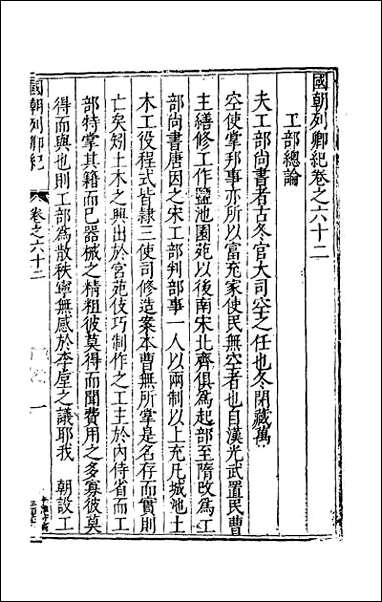 國朝列卿紀卷之六十二
工部總論
夫工部尚書者古冬官大司空之任也冬閉藏萬
空使掌邦事亦所以富充家使民無空者也自漢光武置民曹
主繕修工作鹽池園苑以後南宋北齊俱為起部至隋改為工
部尚書唐因之宋工部判部事一人以兩制以上充凡城池土
木工役程式皆隸三使司修造案本曹無所掌是名存而實則
亡矣矧土木之興出於宮苑伎巧制作之工主於內侍省而工
部特掌其籍而已器械之精粗彼莫得而聞費用之多寡彼莫
得而與也則工部為散秩寧無感於李
之議耶我 朝設工
國朝列卿紀
卷之六十二
一